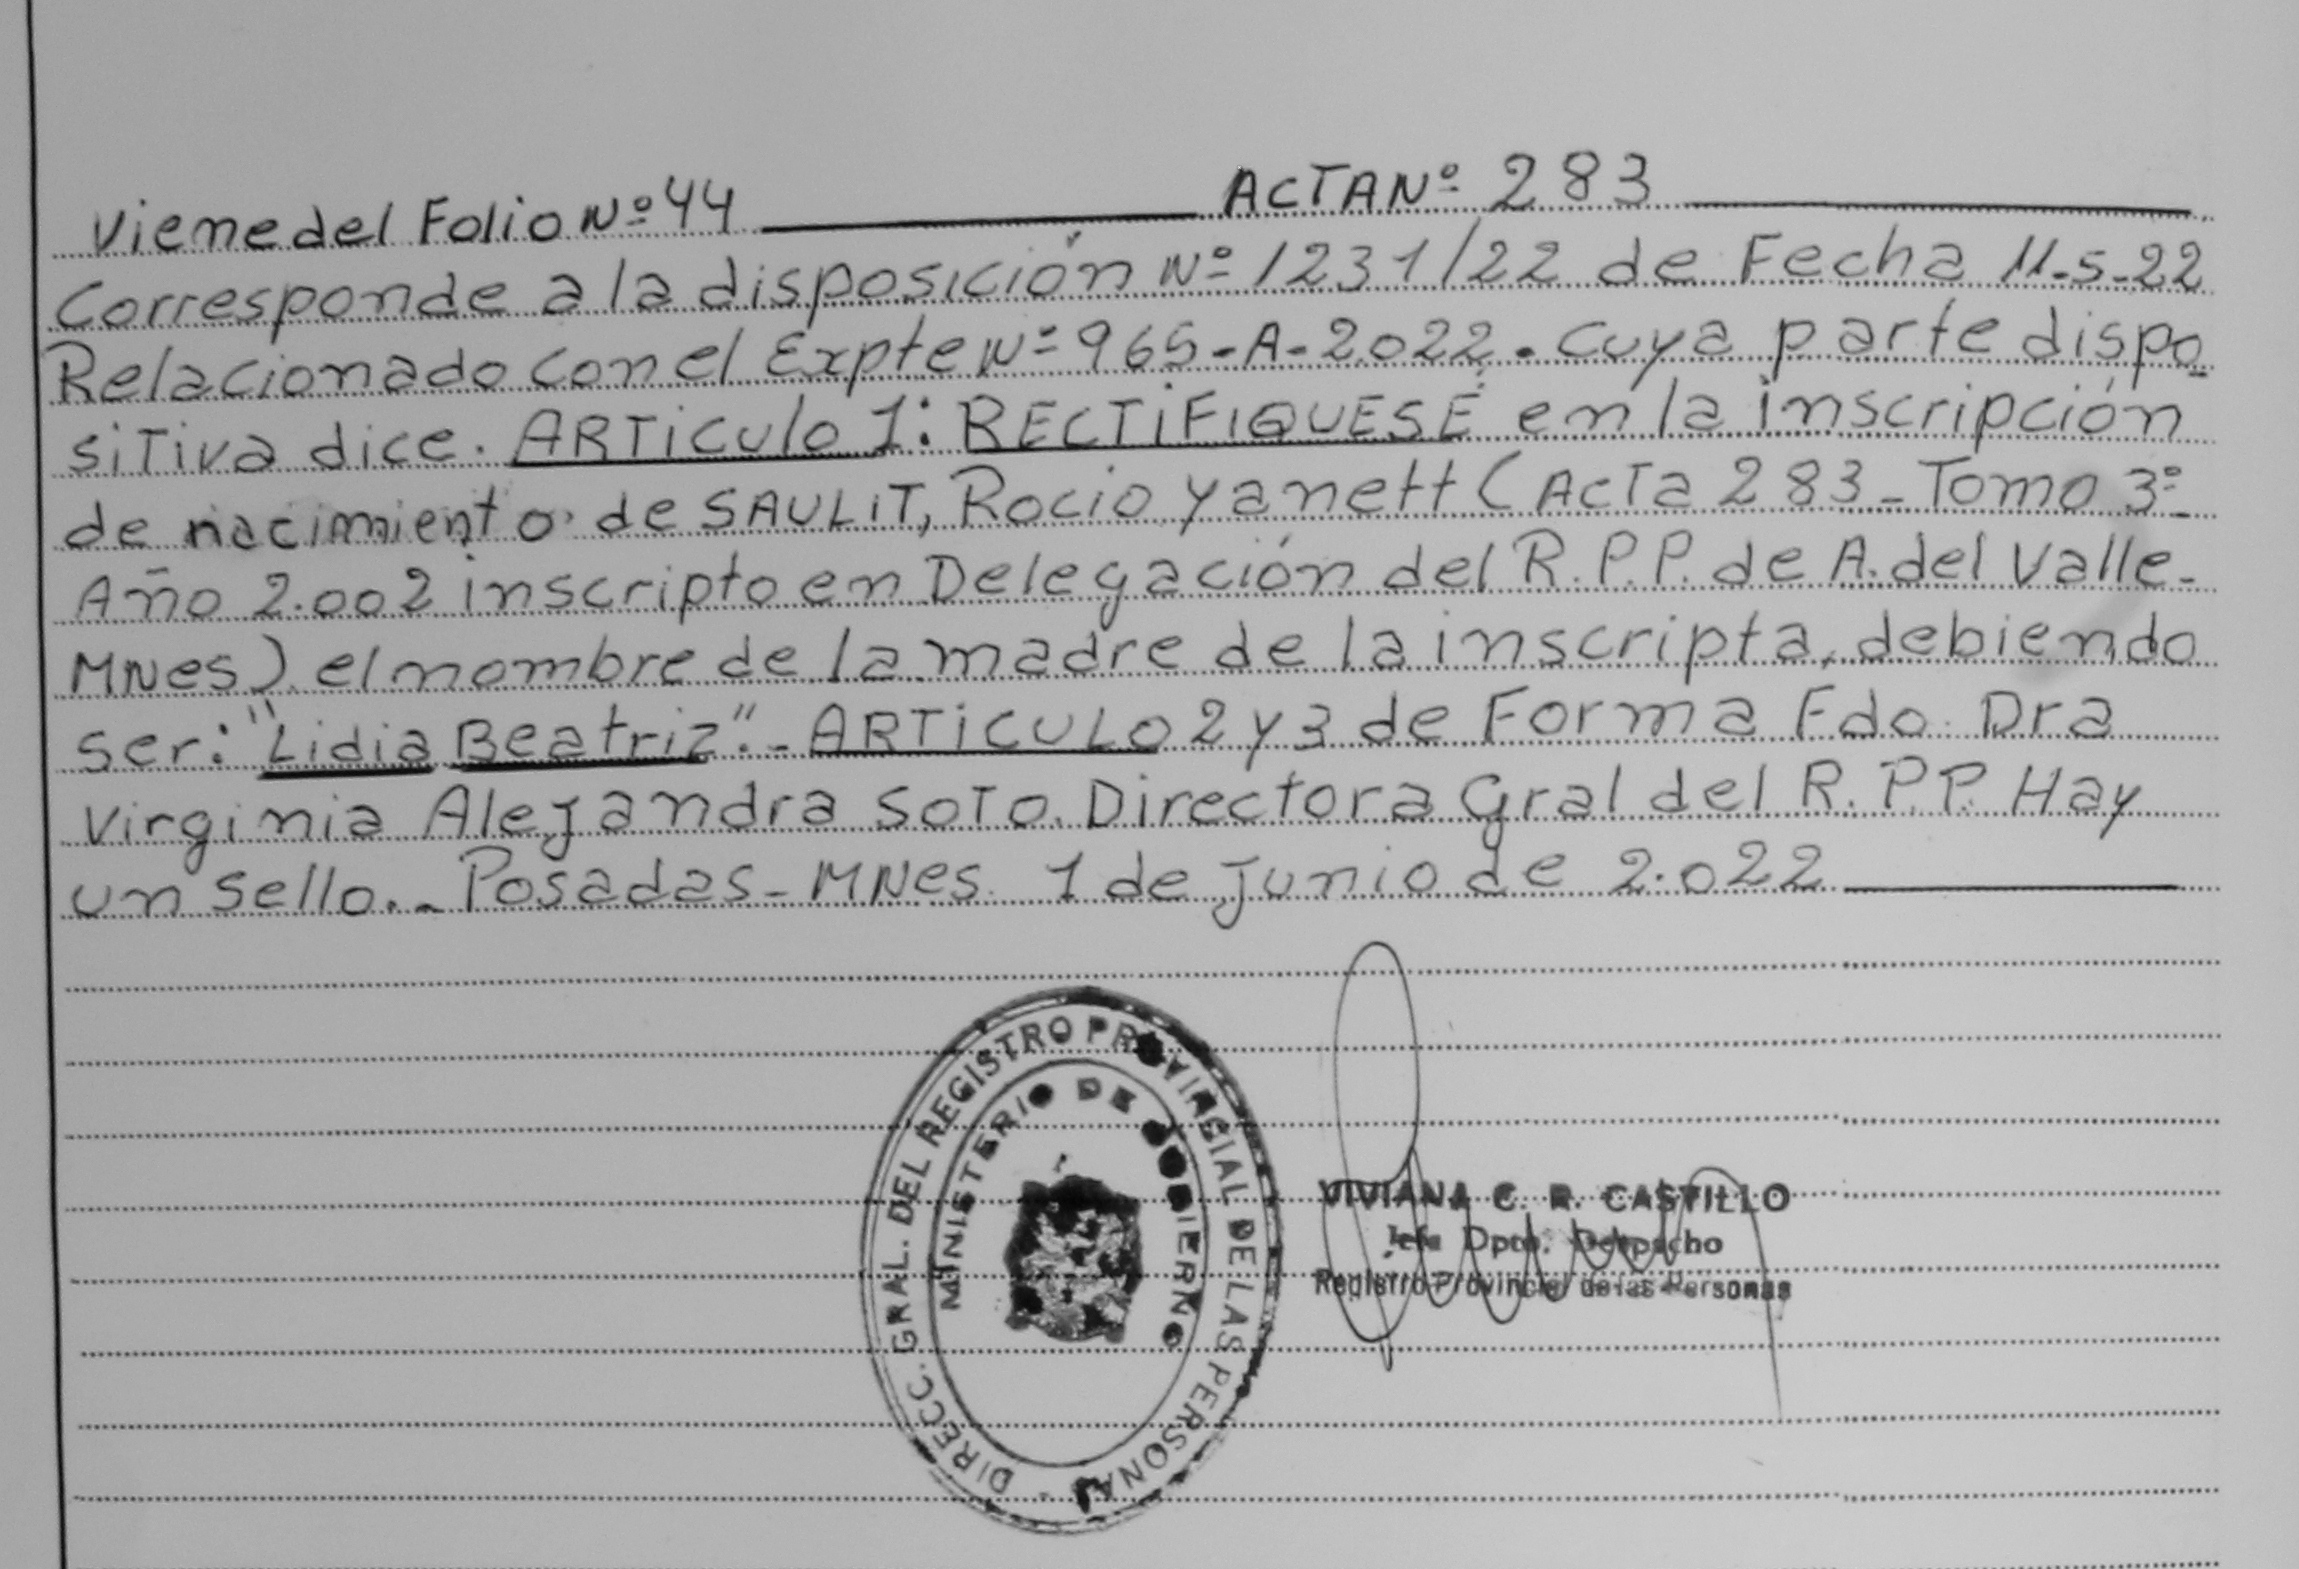 Viene del Folio Nº 44 ACTA Nº 283
Corresponde a la disposición Nº 1231/22 de Fecha 11-5-22
Relacionado con el Expte Nº 965-A-2.022. cuya parte dispo
sitiva dice. ARTiculo 1: RECTiFIQUESE en la inscripción
de nacimiento de SAULIT, Rocio Yanett (Acta 283 - Tomo 3º
Año 2.002 inscripto en Delegación del R.P.P. de A. del Valle-
MNes) el nombre de la madre de la inscripta, debiendo
ser: "Lidia Beatriz".- ARTiCULO 2 y 3 de Forma Fdo. Dra
Virginia Alejandra Soto. Directora Gral del R.P.P. Hay
un sello.- Posadas-MNes 1 de Junio de 2.022
DIRECC. GRAL. DEL REGISTRO PROVINCIAL DE LAS PERSONAS
MINISTERIO DE GOBIERNO
VIVIANA C. R. CASTILLO
Jefa Dpto. Despacho
Registro Provincial de las Personas